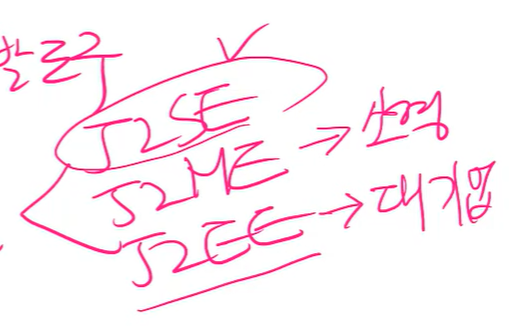 발도구
J2SE
J2ME → 소형
J2EE → 대기업